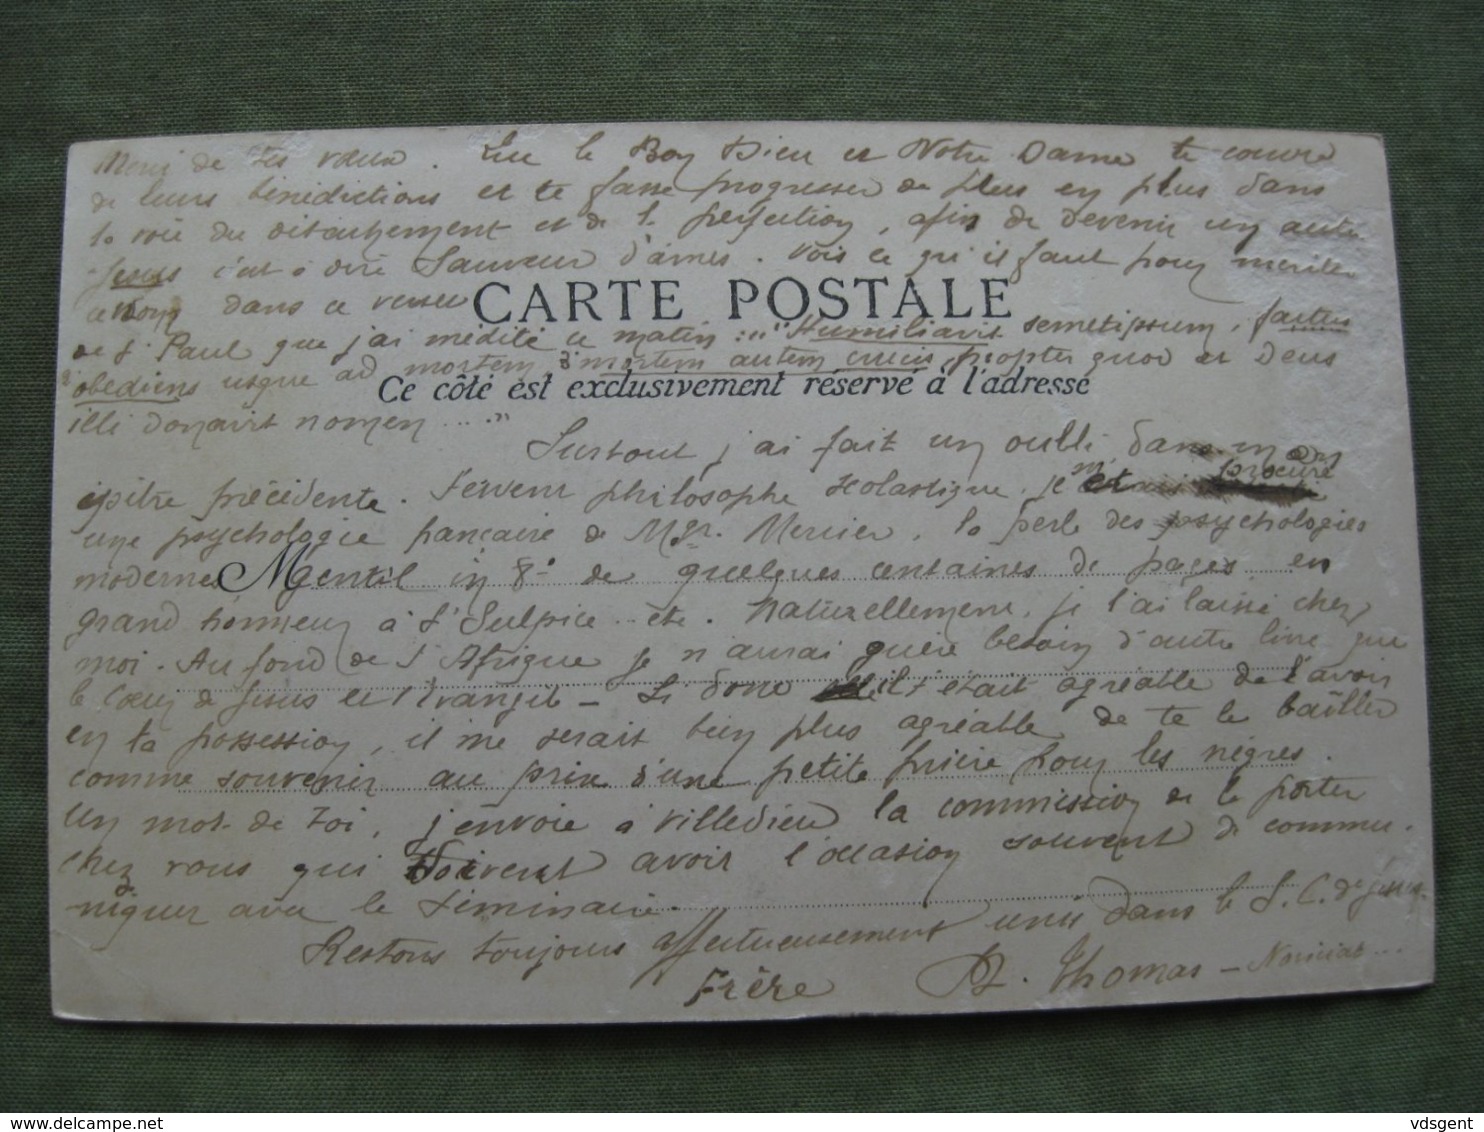 Merci de tes vœux. Que le Bon Dieu et Notre Dame te couvre
de leurs bénédictions et te fasse progresser de plus en plus dans
la voie du détachement et de la perfection, afin de devenir un autre
Jesus c'est à dire Sauveur d'âmes. Vois ce qu'il faut pour mériter
ce nom dans ce verset
CARTE POSTALE
de St Paul que j'ai médité ce matin : "Humiliavit semetipsum, factus
obediens usque ad mortem, mortem autem crucis, propter quod et Deus
Ce côté est exclusivement réservé à l'adresse
illi donavit nomen ...."
Surtout j'ai fait un oubli dans mon
épitre précédente. Fervent philosophe scolastique, je m'étais procuré
une psychologie française de Mgr. Mercier, la perle des psychologies
modernes M gentil in 8° de quelques centaines de pages, en
grand honneur à St Sulpice etc. Naturellement, je l'ai laissé chez
moi. Au fond de l'Afrique je n'aurai guère besoin d'autre livre que
le Cœur de Jesus et l'Evangile - Si donc il t'était agréable de l'avoir
en ta possession, il me serait bien plus agréable de te le bailler
comme souvenir au prix d'une petite prière pour les nègres.
Un mot de toi, j'envoie à Villedieu la commission de le porter
chez vous qui doivent avoir l'occasion souvent de commu-
niquer avec le Séminaire.
Restons toujours affectueusement unis dans le S. C. de Jesus.
Frère Thomas - Novice ...
vdsgent